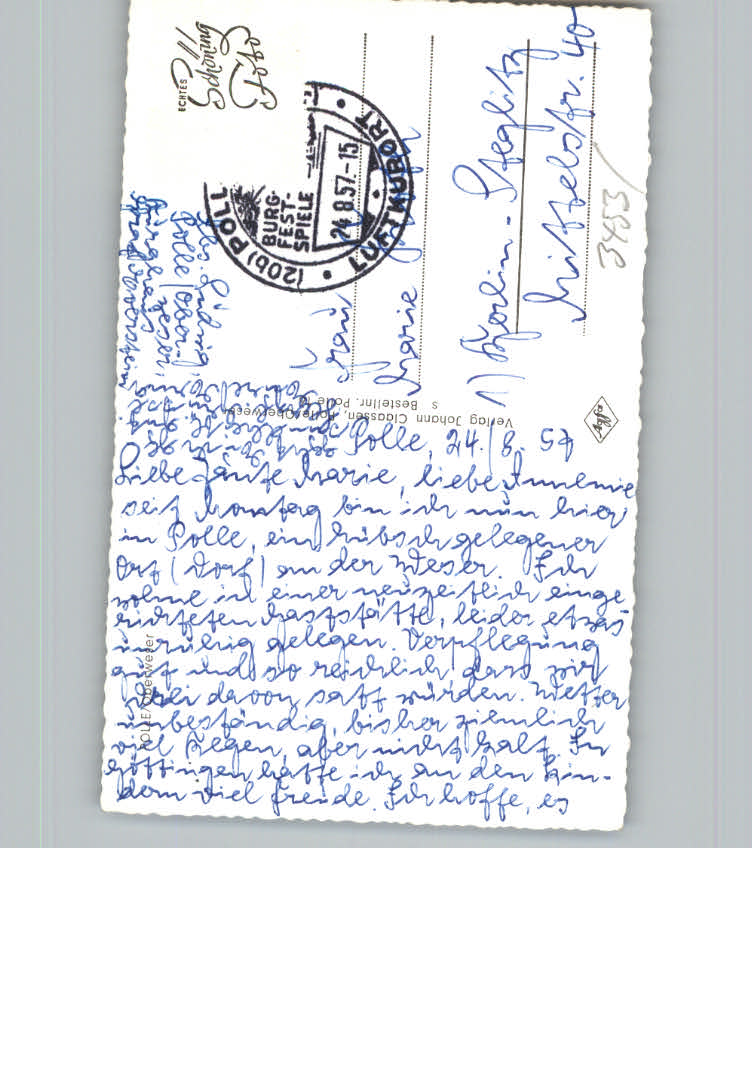 Polle, 24./8. 57
Liebe Tante Marie, liebe Annemie
seit Montag bin ich nun hier
in Polle, ein hübsch gelegener
Ort (Dorf) an der Weser. Ich
wohne in einer neuzeitlich einge
richteten Gaststätte, leider etwas
unruhig gelegen. Verpflegung
gut und so reichlich, dass wir
drei davon satt würden. Wetter
unbeständig, bisher ziemlich
viel Regen, aber nicht kalt. In
Göttingen hatte ich an den Kin-
dern viel Freude. Ich hoffe, es
geht
Polle/Ober-
weser,
Bürgerhaus
Frau
Marie
1) Berlin-Steglitz
Mittelstr. 40
3453/
ECHTES
Schöning
Foto
(20b) POLL
BURG-
FEST-
SPIELE
24.8.57.-15
LUFTKURORT
Verlag Johann Claassen, Polle/Oberweser
s Bestellnr. Polle
POLLE/Oberweser
Agfa